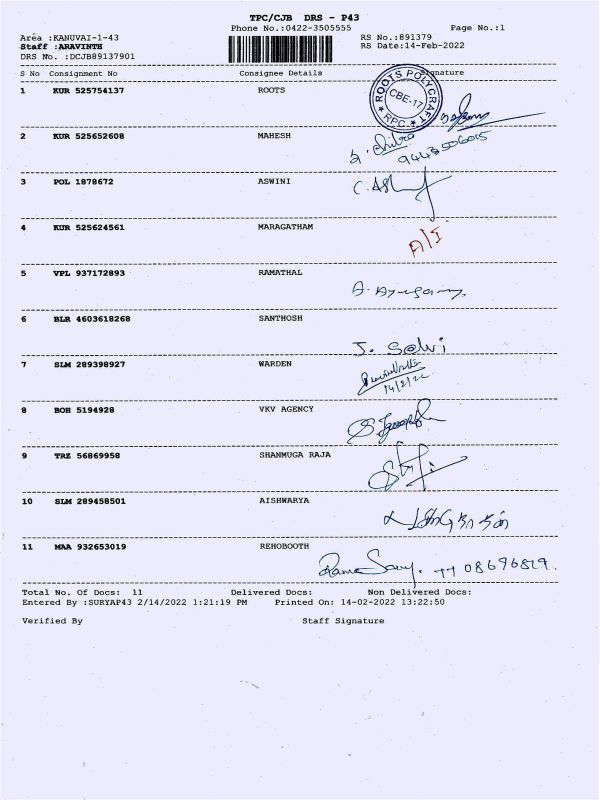 TPC/CJB DRS - P43
Phone No.:0422-3505555
Page No.:1
Area :KANUVAI-1-43
RS No.:891379
Staff :ARAVINTH
RS Date:14-Feb-2022
DRS No. :DCJB89137901
S No Consignment No Consignee Details Signature
ROOTS POLYCRAFT
CBE-17
★ RPC ★
1 KUR 525754137 ROOTS
2 KUR 525652608 MAHESH
9443506015
3 POL 1878672 ASWINI
4 KUR 525624561 MARAGATHAM
A/I
5 VPL 937172893 RAMATHAL
6 BLR 4603618268 SANTHOSH
J. Selvi
7 SLM 289398927 WARDEN
14/2/22
8 BOH 5194928 VKV AGENCY
9 TRZ 56869958 SHANMUGA RAJA
10 SLM 289458501 AISHWARYA
11 MAA 932653019 REHOBOOTH
Total No. Of Docs: 11 Delivered Docs: Non Delivered Docs:
Entered By :SURYAP43 2/14/2022 1:21:19 PM Printed On: 14-02-2022 13:22:50
Verified By Staff Signature